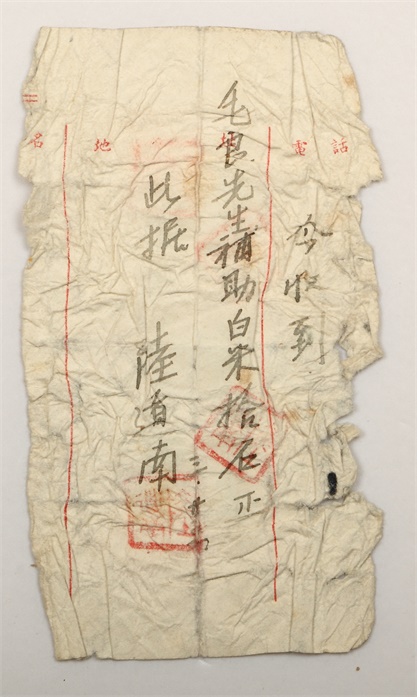 電話
地
名
今收到
毛良先生補助白米拾石正
此据
陸道南
三.十